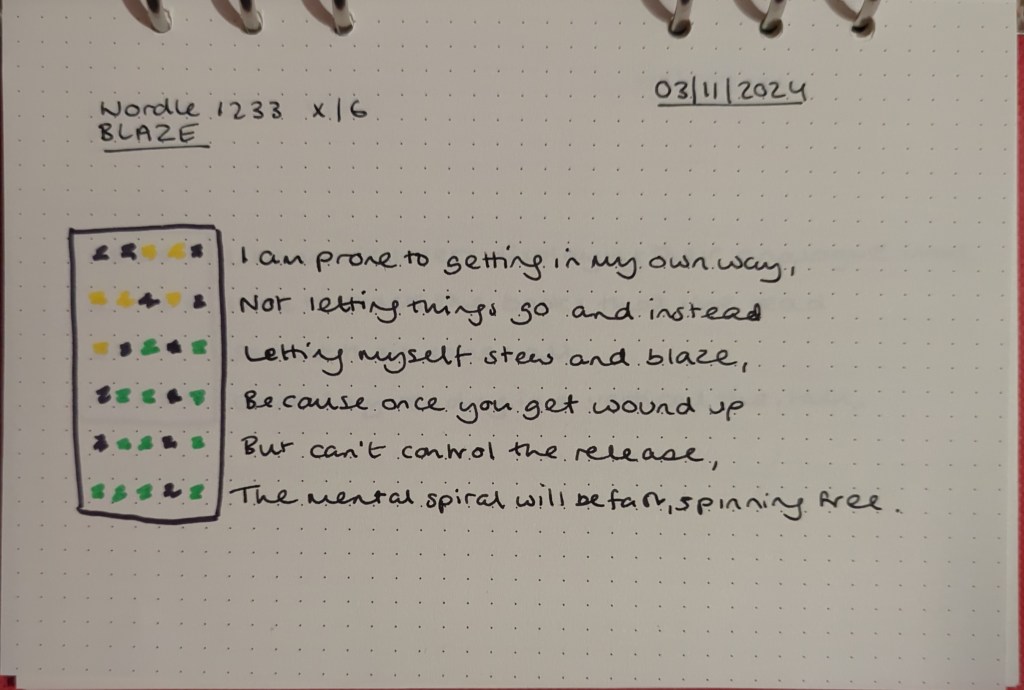 03/11/2024
Wordle 1233 X/6
BLAZE
I am prone to getting in my own way,
Not letting things go and instead
Letting myself stew and blaze,
Because once you get wound up
But can't control the release,
The mental spiral will be fast, spinning free.